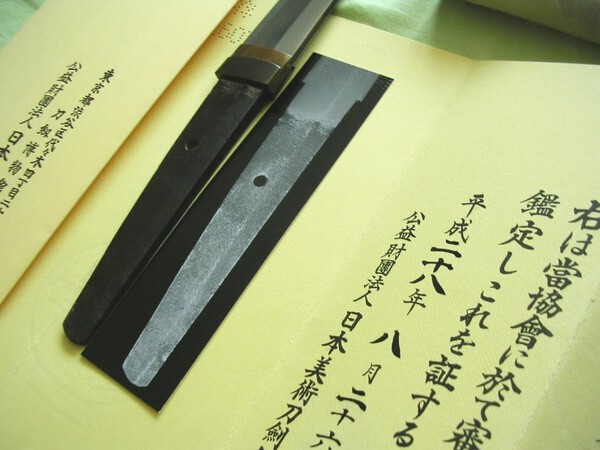 右は當協會に於て審
鑑定しこれを証する
平成二十八年 八月二十六
公益財團法人 日本美術刀劍
東京都渋谷区代々木四丁目二
刀劍博物
公益財團法人 日本